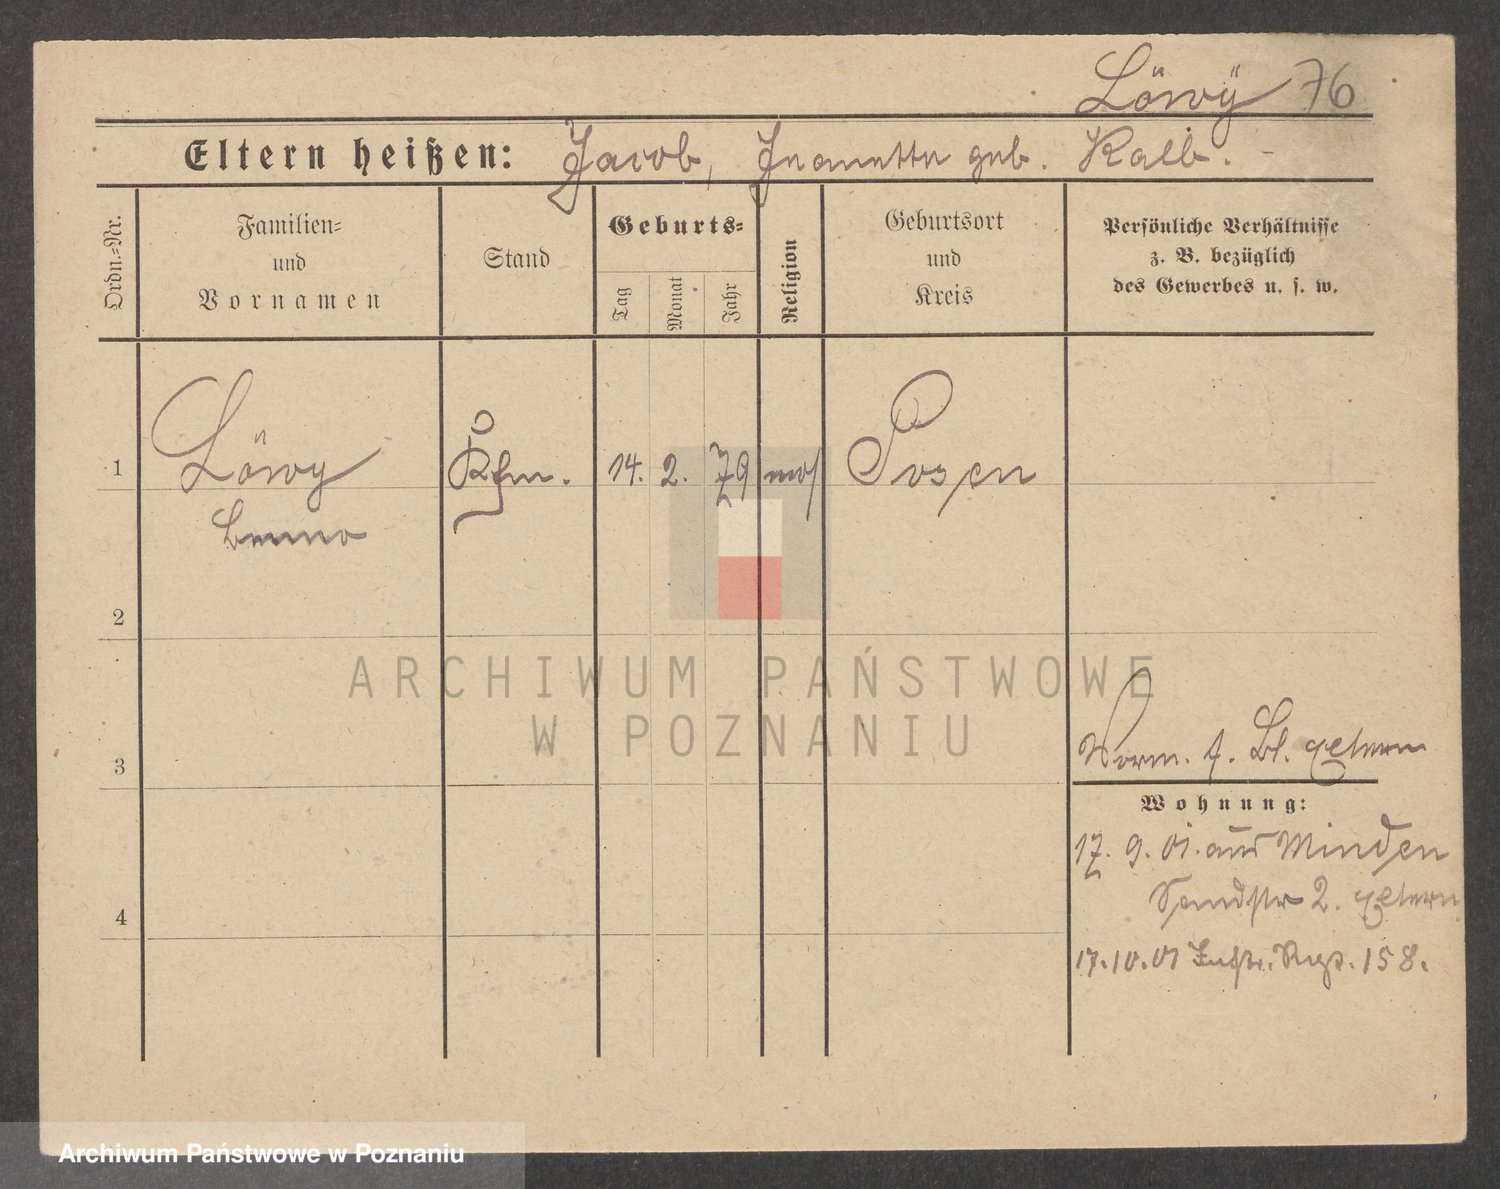 Löwÿ 76
Eltern heißen: Jacob, Jeanette geb. Kalb.
Ordn.=Nr.
Familien=
und
Vornamen
Stand
Geburts=
Tag
Monat
Jahr
Religion
Geburtsort
und
Kreis
Persönliche Verhältnisse
z. B. bezüglich
des Gewerbes u. s. w.
1 Löwy Kfm. 14. 2. 79 mos Posen
Benno
2
3
4
Vorm. f. Bl. Eltern
Wohnung:
17. 9. 01. aus Minden
Sandstr 2. Eltern
17.10.01 Inftr. Regt. 158.
ARCHIWUM PAŃSTWOWE
W POZNANIU
Archiwum Państwowe w Poznaniu